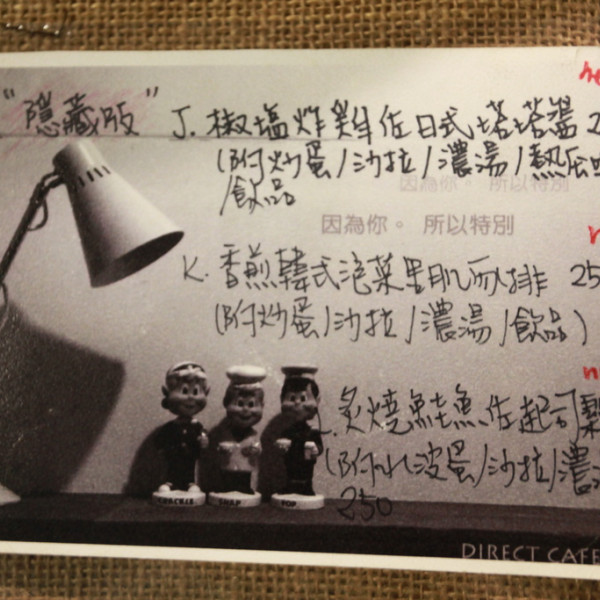 "隱藏版"
J. 椒塩炸雞佐日式塔塔醬 2
(附炒蛋/沙拉/濃湯/熱灰
/飲品
因為你。 所以特別
因為你。 所以特別
K. 香煎韓式泡菜里肌豬排 25
(附炒蛋/沙拉/濃湯/飲品)
L. 炙燒鮭魚佐起司
(附水波蛋/沙拉/濃
250
CRACKLE
SNAP
POP
DIRECT CAFE